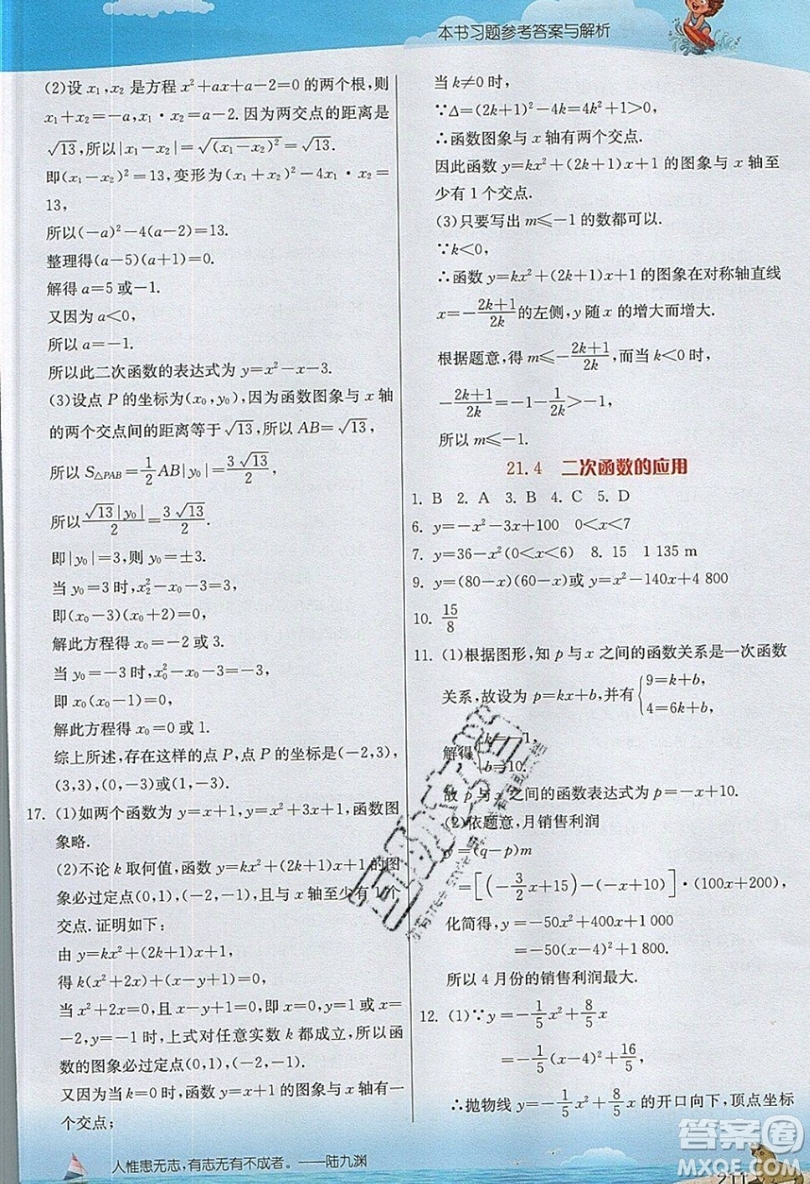 本书习题参考答案与解析
(2)设 x₁,x₂ 是方程 x²+ax+a−2=0 的两个根,则
x₁+x₂=−a,x₁·x₂=a−2.因为两交点的距离是
√13,所以|x₁−x₂|=√(x₁−x₂)²=√13.
即(x₁−x₂)²=13,变形为(x₁+x₂)²−4x₁·x₂=
13,
所以(−a)²−4(a−2)=13.
整理得(a−5)(a+1)=0.
解得 a=5 或−1.
又因为 a<0,
所以 a=−1.
所以此二次函数的表达式为 y=x²−x−3.
(3)设点 P 的坐标为(x₀,y₀),因为函数图象与 x 轴
的两个交点间的距离等于√13,所以 AB=√13,
所以 S△PAB=1/2 AB|y₀|=3√13/2,
所以 √13|y₀|/2=3√13/2.
即|y₀|=3,则 y₀=±3.
当 y₀=3 时,x₂²−x₀−3=3,
即(x₀−3)(x₀+2)=0.
解此方程得 x₀=−2 或 3.
当 y₀=−3 时,x₀²−x₀−3=−3,
即 x₀(x₀−1)=0.
解此方程得 x₀=0 或 1.
综上所述,存在这样的点 P,点 P 的坐标是(−2,3),
(3,3),(0,−3)或(1,−3).
17. (1)如两个函数为 y=x+1,y=x²+3x+1,函数图
象略.
(2)不论 k 取何值,函数 y=kx²+(2k+1)x+1 的图
象必过定点(0,1),(−2,−1),且与 x 轴至少有 1 个
交点.证明如下:
由 y=kx²+(2k+1)x+1,
得 k(x²+2x)+(x−y+1)=0.
当 x²+2x=0,且 x−y+1=0,即 x=0,y=1 或 x=
−2,y=−1 时,上式对任意实数 k 都成立,所以函
数的图象必过定点(0,1),(−2,−1).
又因为当 k=0 时,函数 y=x+1 的图象与 x 轴有一
个交点;
当 k≠0 时,
∵Δ=(2k+1)²−4k=4k²+1>0,
∴函数图象与 x 轴有两个交点.
因此函数 y=kx²+(2k+1)x+1 的图象与 x 轴至
少有 1 个交点.
(3)只要写出 m≤−1 的数都可以.
∵k<0,
∴函数 y=kx²+(2k+1)x+1 的图象在对称轴直线
x=−(2k+1)/2k 的左侧,y 随 x 的增大而增大.
根据题意,得 m≤−(2k+1)/2k,而当 k<0 时,
−(2k+1)/2k=−1−1/2k>−1,
所以 m≤−1.
21.4 二次函数的应用
1. B 2. A 3. B 4. C 5. D
6. y=−x²−3x+100 0<x<7
7. y=36−x²(0<x<6) 8. 15 1 135 m
9. y=(80−x)(60−x)或 y=x²−140x+4 800
10. 15/8
11. (1)根据图形,知 p 与 x 之间的函数关系是一次函数
关系,故设为 p=kx+b,并有{9=k+b, 4=6k+b,
解得{ 1, b=10.
故 p 与 x 之间的函数表达式为 p=−x+10.
(2)依题意,月销售利润
y=(q−p)m
=[(−3/2x+15)−(−x+10)]·(100x+200),
化简得,y=−50x²+400x+1 000
=−50(x−4)²+1 800.
所以 4 月份的销售利润最大.
12. (1)∵y=−1/5x²+8/5x
=−1/5(x−4)²+16/5,
∴抛物线 y=−1/5x²+8/5x 的开口向下,顶点坐标
人惟患无志,有志无有不成者。——陆九渊
答案圈
MXQE.COM
211